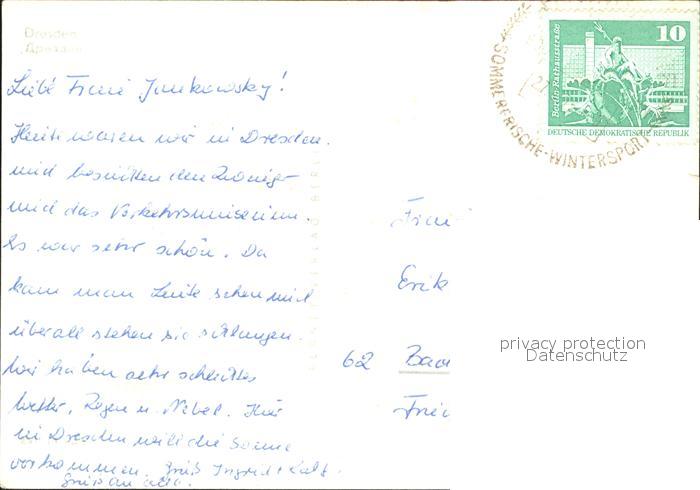 Dresden
Liebe Frau Jankowsky!
Heute waren wir in Dresden.
und besuchten den Zwinger
und das Verkehrsmuseum.
Es war sehr schön. Da
kann man Leute sehen und
überall stehen sie schlangen.
Wir haben sehr schlechtes
Wetter, Regen u. Nebel. Hier
in Dresden will die Sonne
vorkommen. Gruß Ingrid + Ralf.
Gruß an alle.
Frau
Erik
62 Bad
Frie
10
Berlin-Rathausstraße
DEUTSCHE DEMOKRATISCHE REPUBLIK
SOMMERFRISCHE-WINTERSPORT
privacy protection
Datenschutz